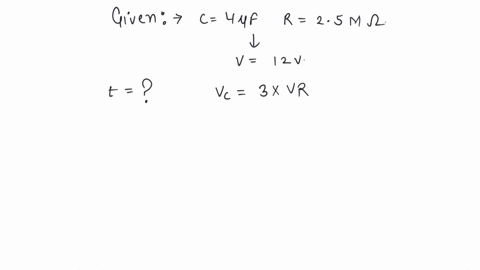 Given:→ C=4μF R = 2.5 M Ω
↓
V = 12 V.
t = ? Vc = 3 x VR